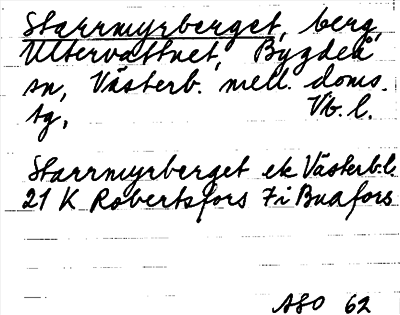 Starrmyrberget, berg,
Ultervattnet, Bygdeå
sn, Västerb. mell. doms.
tg, Vb. l.
Starrmyrberget ek Västerb.l.
21 K Robertsfors 7i Buafors
ASO 62